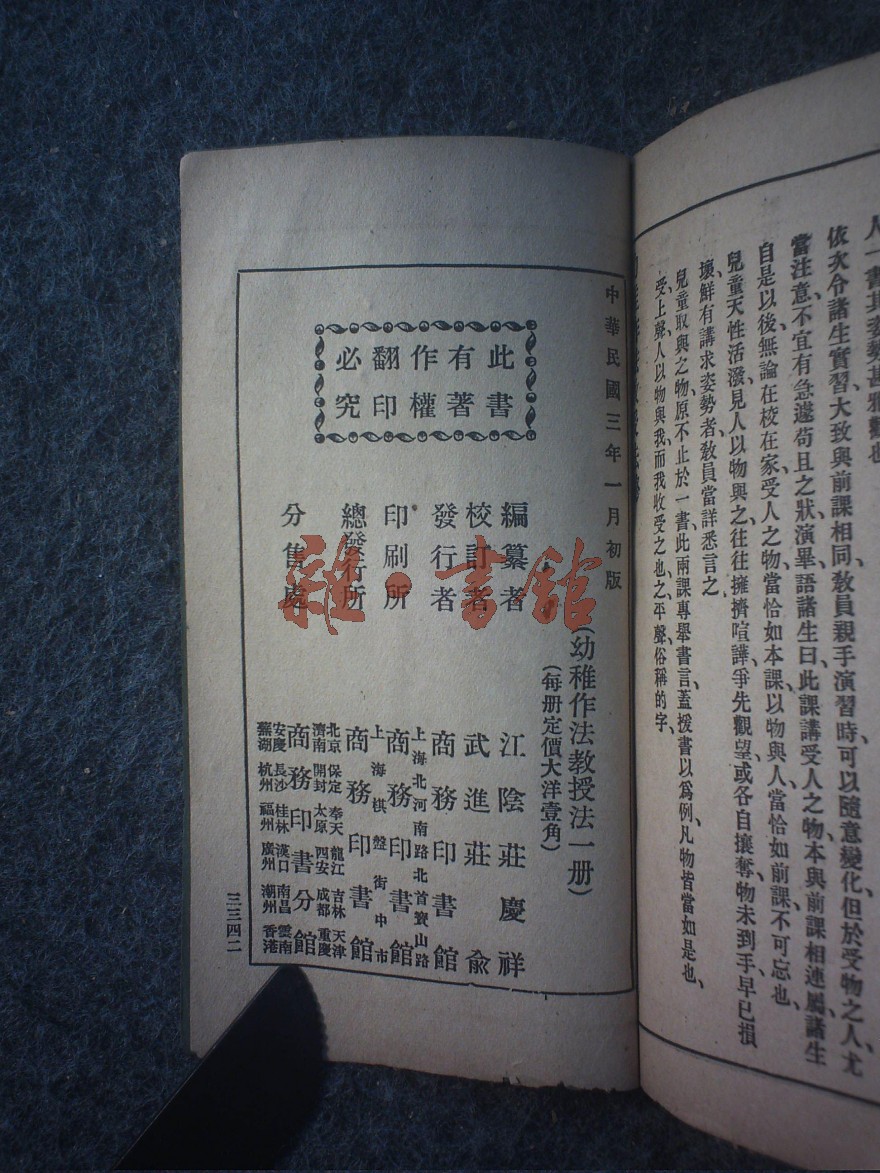 人一書其姿勢甚雅觀也
依次令諸生實習大致與前課相同教員親手演習時可以隨意變化但於受物之人尤
當注意不宜有急遽苟且之狀演畢語諸生曰此課講受人之物本與前課相連屬諸生
自是以後無論在校在家受人之物當恰如本課以物與人當恰如前課不可忘也
兒童天性活潑見人以物與之往往擁擠喧譁爭先觀望或各自攘奪物未到手早已損
壞鮮有講求姿勢者敎員當詳悉言之
兒童取與之物原不止於一書此兩課專舉書言蓋援書以爲例凡物皆當如是也
受上聲人以物與我而我收受之也之平聲俗稱的字
中華民國三年一月初版
此書有著作權翻印必究
(幼稚作法教授法一册)
(每册定價大洋壹角)
編纂者 江陰莊慶祥
校訂者 武進莊俞
發行者 商務印書館
印刷所 上海北河南路北首寶山路 商務印書館
總發行所 上海棋盤街中市 商務印書館
分售處 北京 保定 奉天 龍江 吉林 天津
濟南 開封 太原 西安 成都 重慶
商務印書分館
安慶 長沙 桂林 漢口 南昌 雲南
蕪湖 杭州 福州 廣州 潮州 香港
三三四二
雜·書館